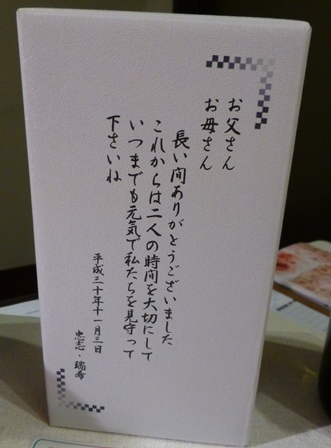 お父さん
お母さん
長い間ありがとうございました
これからは二人の時間を大切にして
いつまでも元気で私たちを見守って
下さいね
平成三十年十一月三日
忠志・瑞希